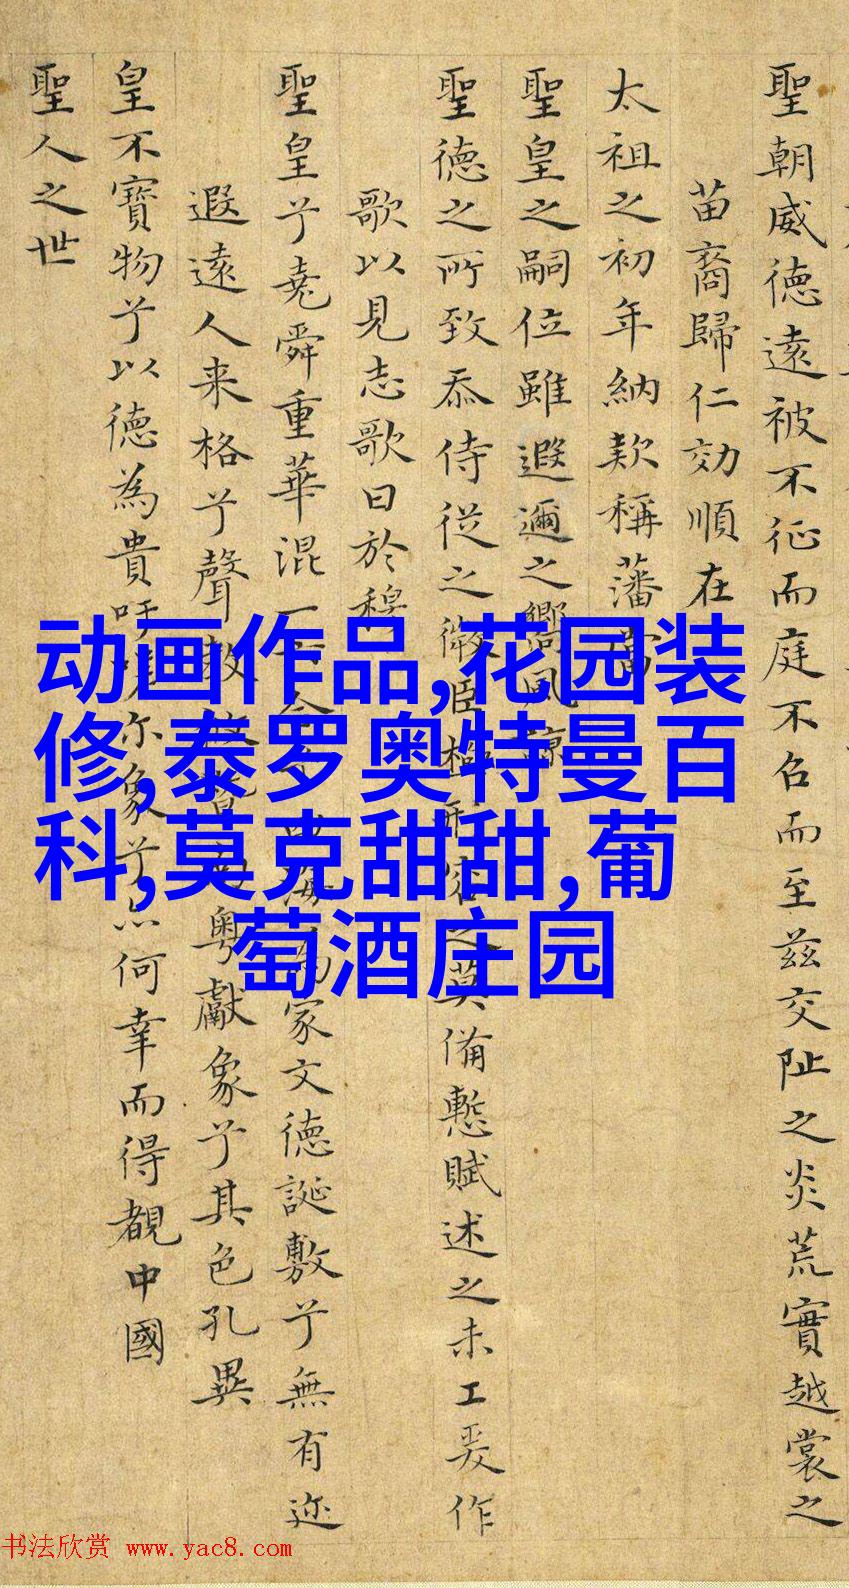 聖朝威德遠被不征而庭不召而至茲交阯之炎荒實越裳之
苗裔歸仁効順在
太祖之初年納款稱藩當
聖皇之嗣位雖遐邇之嚮風諒
聖德之所致忝侍從之微臣極形容之莫備慙賦述之未工爰作
歌以見志歌曰於穆
聖皇兮堯舜重華混一
為家文德誕敷兮無有迩
遐遠人来格兮聲教
粤獻象兮其色孔異
皇不寶物兮以德為貴吁嗟尔象兮亦何幸而得覩中國
聖人之世
动画作品,花园装
修,泰罗奥特曼百
科,莫克甜甜,葡
萄酒庄园
书法欣赏 www.yac8.com